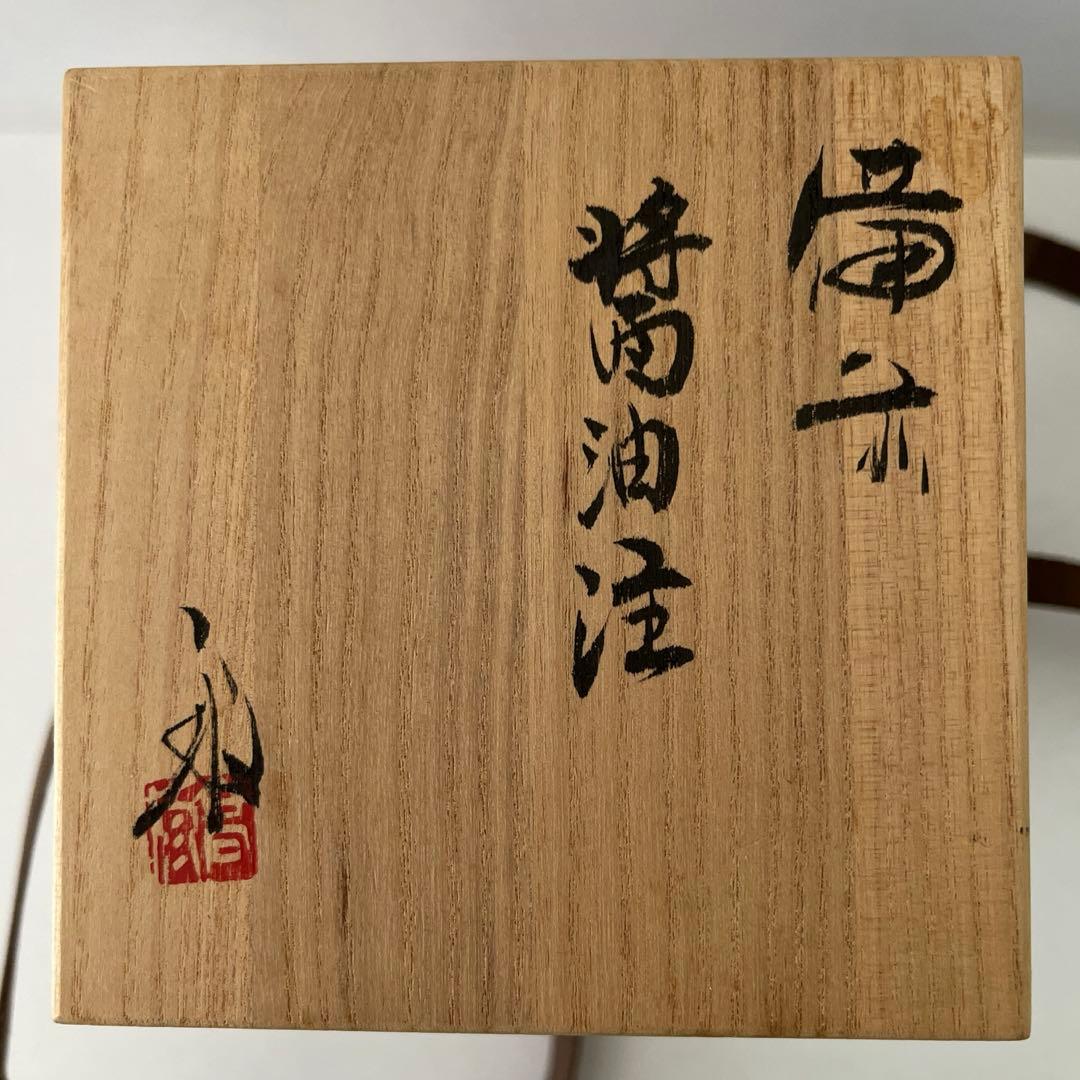 備前
醤油注